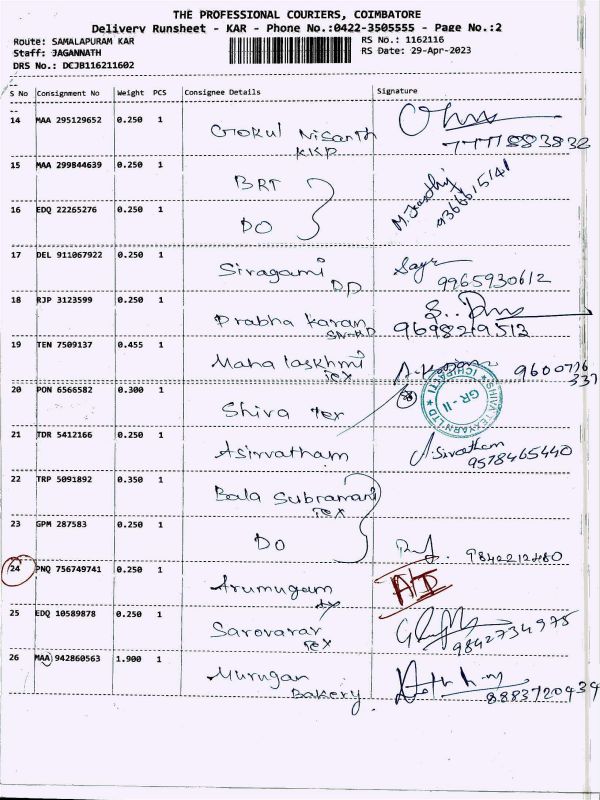 THE PROFESSIONAL COURIERS, COIMBATORE
Delivery Runsheet - KAR - Phone No.:0422-3505555 - Page No.:2
Route: SAMALAPURAM KAR
RS No.: 1162116
Staff: JAGANNATH
RS Date: 29-Apr-2023
DRS No.: DCJB116211602
S No Consignment No Weight PCS Consignee Details Signature
14 MAA 295129652 0.250 1 Gokul Nisanth
KKP 7771883832
15 MAA 299844639 0.250 1 BRT
9366615141
16 EDQ 22265276 0.250 1 DO
17 DEL 911067922 0.250 1 Siragami
DD 9965930612
18 RJP 3123599 0.250 1 Prabha Karan
9698219513
19 TEN 7509137 0.455 1 Maha laskhmi
Tex 9600776
337
20 PON 6566582 0.300 1 Shiva Tex
SHIVA TEXYARN LTD
GR-II
21 TDR 5412166 0.250 1 Asirvatham A.Sivatham
9578465440
22 TRP 5091892 0.350 1 Bala Subramani
Tex
23 GPM 287583 0.250 1 DO
9842212480
24 PNQ 756749741 0.250 1 Arumugam
A/D
25 EDQ 10589878 0.250 1 Sarovarar
Tex 9842734975
26 MAA 942860563 1.900 1 Murugan
Bakery 8883720434